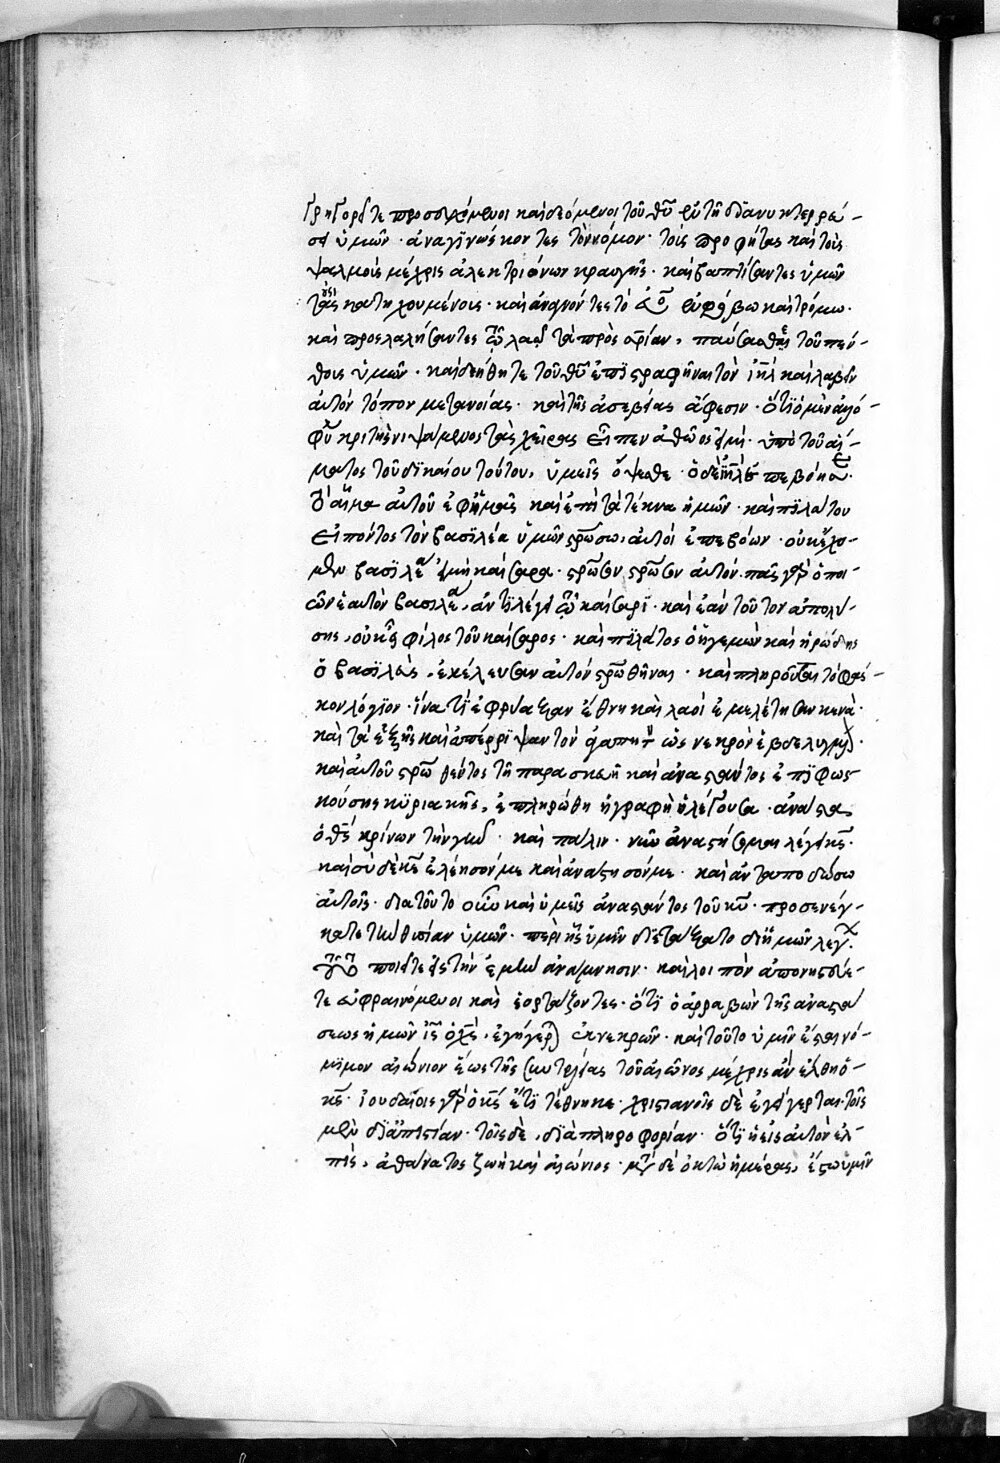 γρηγορεῖτε προσευχόμενοι καὶ δεόμενοι τοῦ θῦ ἐν τῆ διανυκτερεύ-
σει ὑμῶν· ἀναγινώσκοντες τὸν νόμον· τοὺς προφήτας καὶ τοὺς
ψαλμοὺς μέχρις ἀλεκτρυόνων κραυγῆς· καὶ βαπτίσαντες ὑμῶν
τοὺς κατηχουμένους· καὶ ἀναγνόντες τὸ εὐαγγέλιον ἐν φόβω καὶ τρόμω·
καὶ προσλαλήσαντες τῶ λαῶ τὰ πρὸς σρίαν, παύσασθαι τοῦ πέν-
θους ὑμῶν· καὶ δεήθητε τοῦ θῦ ἐπιστραφῆναι τὸν ἰηλ καὶ λαβεῖν
αὐτὸν τόπον μετανοίας· καὶ τῆς ἀσεβείας ἄφεσιν· ὅτι ὁ μὲν ἀλλό-
φυ κριτὴς νιψάμενος τὰς χεῖρας εἶπεν ἀθῶος εἰμὶ· ἀπὸ τοῦ αἵ-
ματος τοῦ δικαίου τούτου, ὑμεῖς ὄψεσθε· ὁ δὲ ἰηλ ἐπεβόησε·
τὸ αἷμα αὐτοῦ ἐφ' ἡμᾶς καὶ ἐπὶ τὰ τέκνα ἡμῶν· καὶ πιλάτου
εἰπόντος τὸν βασιλέα ὑμῶν σρώσω, αὐτοὶ ἐπεβόων· οὐκ ἔχο-
μεν βασιλέα εἰμὴ καίσαρα· σρωσον σρωσον αὐτόν· πᾶς γὰρ ὁ ποι-
ῶν ἑαυτὸν βασιλέα, ἀντιλέγει τῶ καίσαρι· καὶ ἐὰν τοῦτον ἀπολύ-
σης, οὐκ εἶ φίλος τοῦ καίσαρος· καὶ πιλάτος ὁ ἡγεμὼν καὶ ἡρώδης
ὁ βασιλεὺς, ἐκέλευσαν αὐτὸν σρωθῆναι· καὶ πληροῦται τὸ φάσ-
κον λόγιον· ἵνα τί ἐφρύαξαν ἔθνη καὶ λαοὶ ἐμελέτησαν κενὰ·
καὶ τὰ ἑξῆς καὶ ἀπέρριψαν τὸν ἀγαπητὸν ὡς νεκρὸν ἐβδελυγμένον·
καὶ αὐτοῦ σρωθέντος τῆ παρασκευῆ καὶ ἀναστάντος ἐπιφωσ-
κούσης κυριακῆς, ἐπληρώθη ἡ γραφὴ ἡ λέγουσα· ἀνάστα
ὁ θς κρίνων τὴν γῆν· καὶ πάλιν· νῦν ἀναστήσομαι λέγει κς·
καὶ σὺ δὲ κε ἐλέησόν με καὶ ἀνάστησόν με· καὶ ἀνταποδώσω
αὐτοῖς· διατοῦτο οὖν καὶ ὑμεῖς ἀναστάντος τοῦ κυ· προσενέγ-
κατε τὴν θυσίαν ὑμῶν· περὶ ἧς ὑμῖν διετάξατο δι' ἡμῶν λέγων·
τοῦτο ποιεῖτε εἰς τὴν ἐμὴν ἀνάμνησιν· καὶ λοιπὸν ἀπονηστεύε-
τε εὐφραινόμενοι καὶ ἑορτάζοντες· ὅτι ὁ ἀρραβὼν τῆς ἀναστά
σεως ἡμῶν ις ὁ χς, ἐγήγερται ἐκ νεκρῶν· καὶ τοῦτο ὑμῖν ἔσται νό-
μιμον αἰώνιον ἕως τῆς συντελείας τοῦ αἰῶνος μέχρις ἂν ἔλθη ὁ-
κς· ἰουδαίοις γὰρ ὁ κς ἔτι τέθνηκε· χριστιανοῖς δὲ ἐγήγερται· τοῖς
μὲν δι' ἀπιστίαν· τοῖς δὲ, διὰ πληροφορίαν· ὅτι ἡ εἰς αὐτὸν ἐλ-
πὶς, ἀθάνατος ζωὴ καὶ αἰώνιος· μετὰ δὲ ὀκτὼ ἡμέρας, ἔστω ὑμῖν